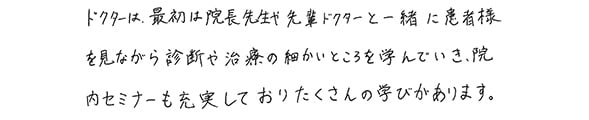 ドクターは、最初は院長先生や先輩ドクターと一緒に患者様
を見ながら診断や治療の細かいところを学んでいき、院
内セミナーも充実しておりたくさんの学びがあります。